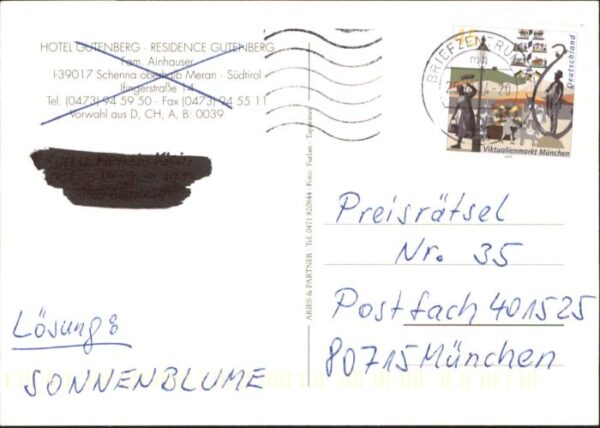 HOTEL GUTENBERG - RESIDENCE GUTENBERG
Fam. Ainhauser
I-39017 Schenna oberhalb Meran - Südtirol
Ifingerstraße 14
Tel. (0473) 94 59 50 - Fax (0473) 94 55 11
Vorwahl aus D, CH, A, B: 0039
Lösung:
SONNENBLUME
ARIES & PARTNER - Tel. 0471 820844 - Foto: Furlan - Tappeiner
BRIEFZENTRUM
Deutschland
Viktualienmarkt München
Preisrätsel
Nr. 35
Postfach 401525
80715 München